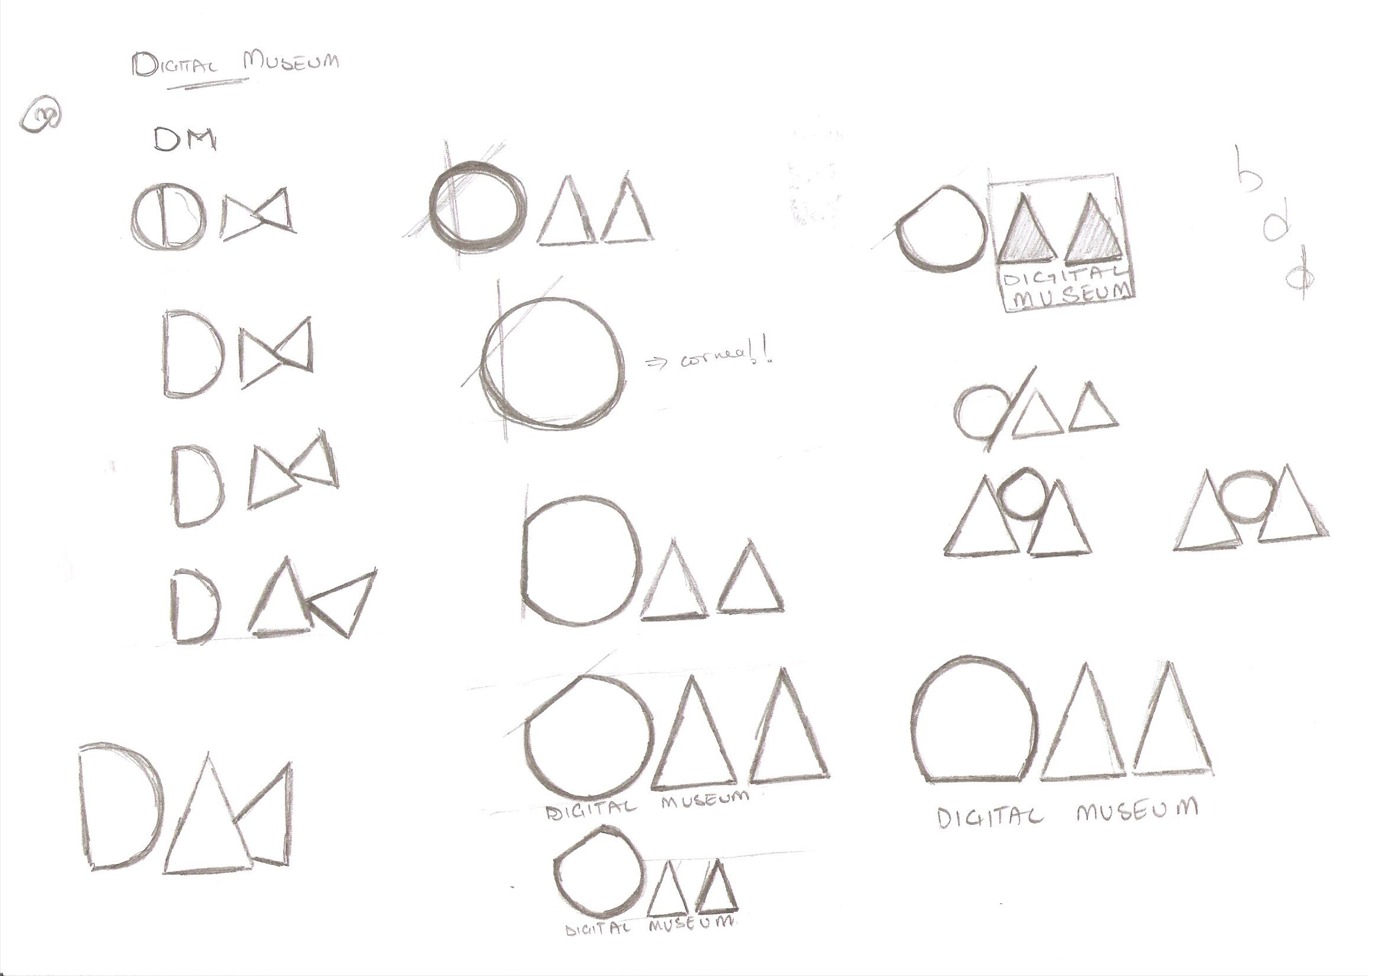 DIGITAL MUSEUM
DM
DIGITAL
MUSEUM
b
d
⇒ cornea!!
DIGITAL MUSEUM
DIGITAL MUSEUM
DIGITAL MUSEUM